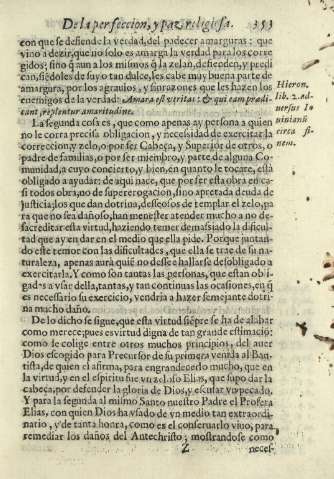 De la perfeccion, y paz religiosa. 353
con que se defiende la verdad, del padecer amarguras: que
vino a dezir, que no solo es amarga la verdad para los corre
gidos; sino q̃ aun a los mismos q̃ la zelan, defiendẽ, y predi
can, siẽdoles de suyo tan dulce, les cabe muy buena parte de
amargura, por los agrauios, y sinrazones que les hazen los
enemigos de la verdad: Amara est veritas: & qui eam prædi
cant, replentur amaritudine.
Hieron.
lib. 2. ad-
uersus Io
uinianũ
circa fi-
nem.
La segunda cosa es, que como apenas ay persona a quien
no le corra precisa obligacion, y necesidad de exercitar la
correccion, y zelo, o por ser Cabeça, y Superior de otros, o
padre de familias, o por ser miembro, y parte de alguna Co
munidad, a cuyo concierto, y bien, en quanto le tocare, està
obligado a ayudar: de aqui nace, que por ser esta obra en ca
si todos obra no de supererogacion, sino apretada deuda de
justicia; los que dan dotrina, desseosos de templar el zelo, pa
ra que no sea dañoso, han menester atender mucho a no de-
sacreditar esta virtud, haziendo temer demassiado la dificul
tad que ay en dar en el medio que ella pide. Porque juntan-
do este temor con las dificultades, que ella se trae de su na-
turaleza, apenas aurà quiẽ no desee hallarse desobligado a
exercitarla. Y como son tantas las personas, que estan obli-
gadas a vsar della, tantas, y tan continuas las ocasiones, en q̃
es necessario su exercicio, vendria a hazer semejante dotri-
na mucho daño.
De lo dicho se sigue, que esta virtud siẽpre se ha de alabar
como merece, pues es virtud digna de tan grande estimaciõ;
como se colige entre otros muchos principios, del auer
Dios escogido para Precursor de su primera venida al Bau-
tista, de quien el afirma, para engrandecerlo mucho, que en
la virtud, y en el spiritu fue vn zeloso Elias, que supo dar la
cabeça, por defender la gloria de Dios, y escular vn pecado.
Y para la segunda al mismo Santo nuestro Padre el Profeta
Elias, con quien Dios ha vsado de vn medio tan extraordi-
nario, y de tanta honra, como es el conseruarlo viuo, para
remediar los daños del Antechristo; mostrandose como
Z neces-